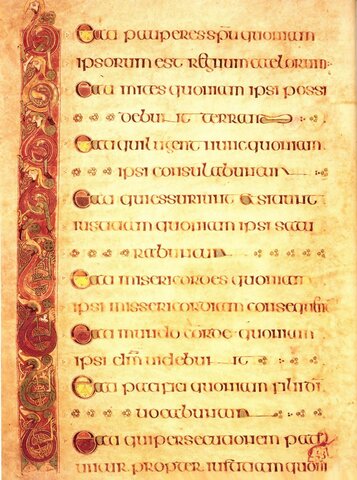 Beati pauperes spu quoniam
ipsorum est regnum caelorum
Beati mites quoniam ipsi possi
debunt terram
Beati qui lugent nunc quoniam
ipsi consulabuntur
Beati qui essuriunt & sitiunt
iustitiam quoniam ipsi satu
rabuntur
Beati misericordes quoniam
ipsi missericordiam consequntur
Beati mundo corde quoniam
ipsi dm videbunt
Beati pacifici quoniam filii di
vocabuntur
Beati qui persecutionem pati
untur propter iustitiam quoni